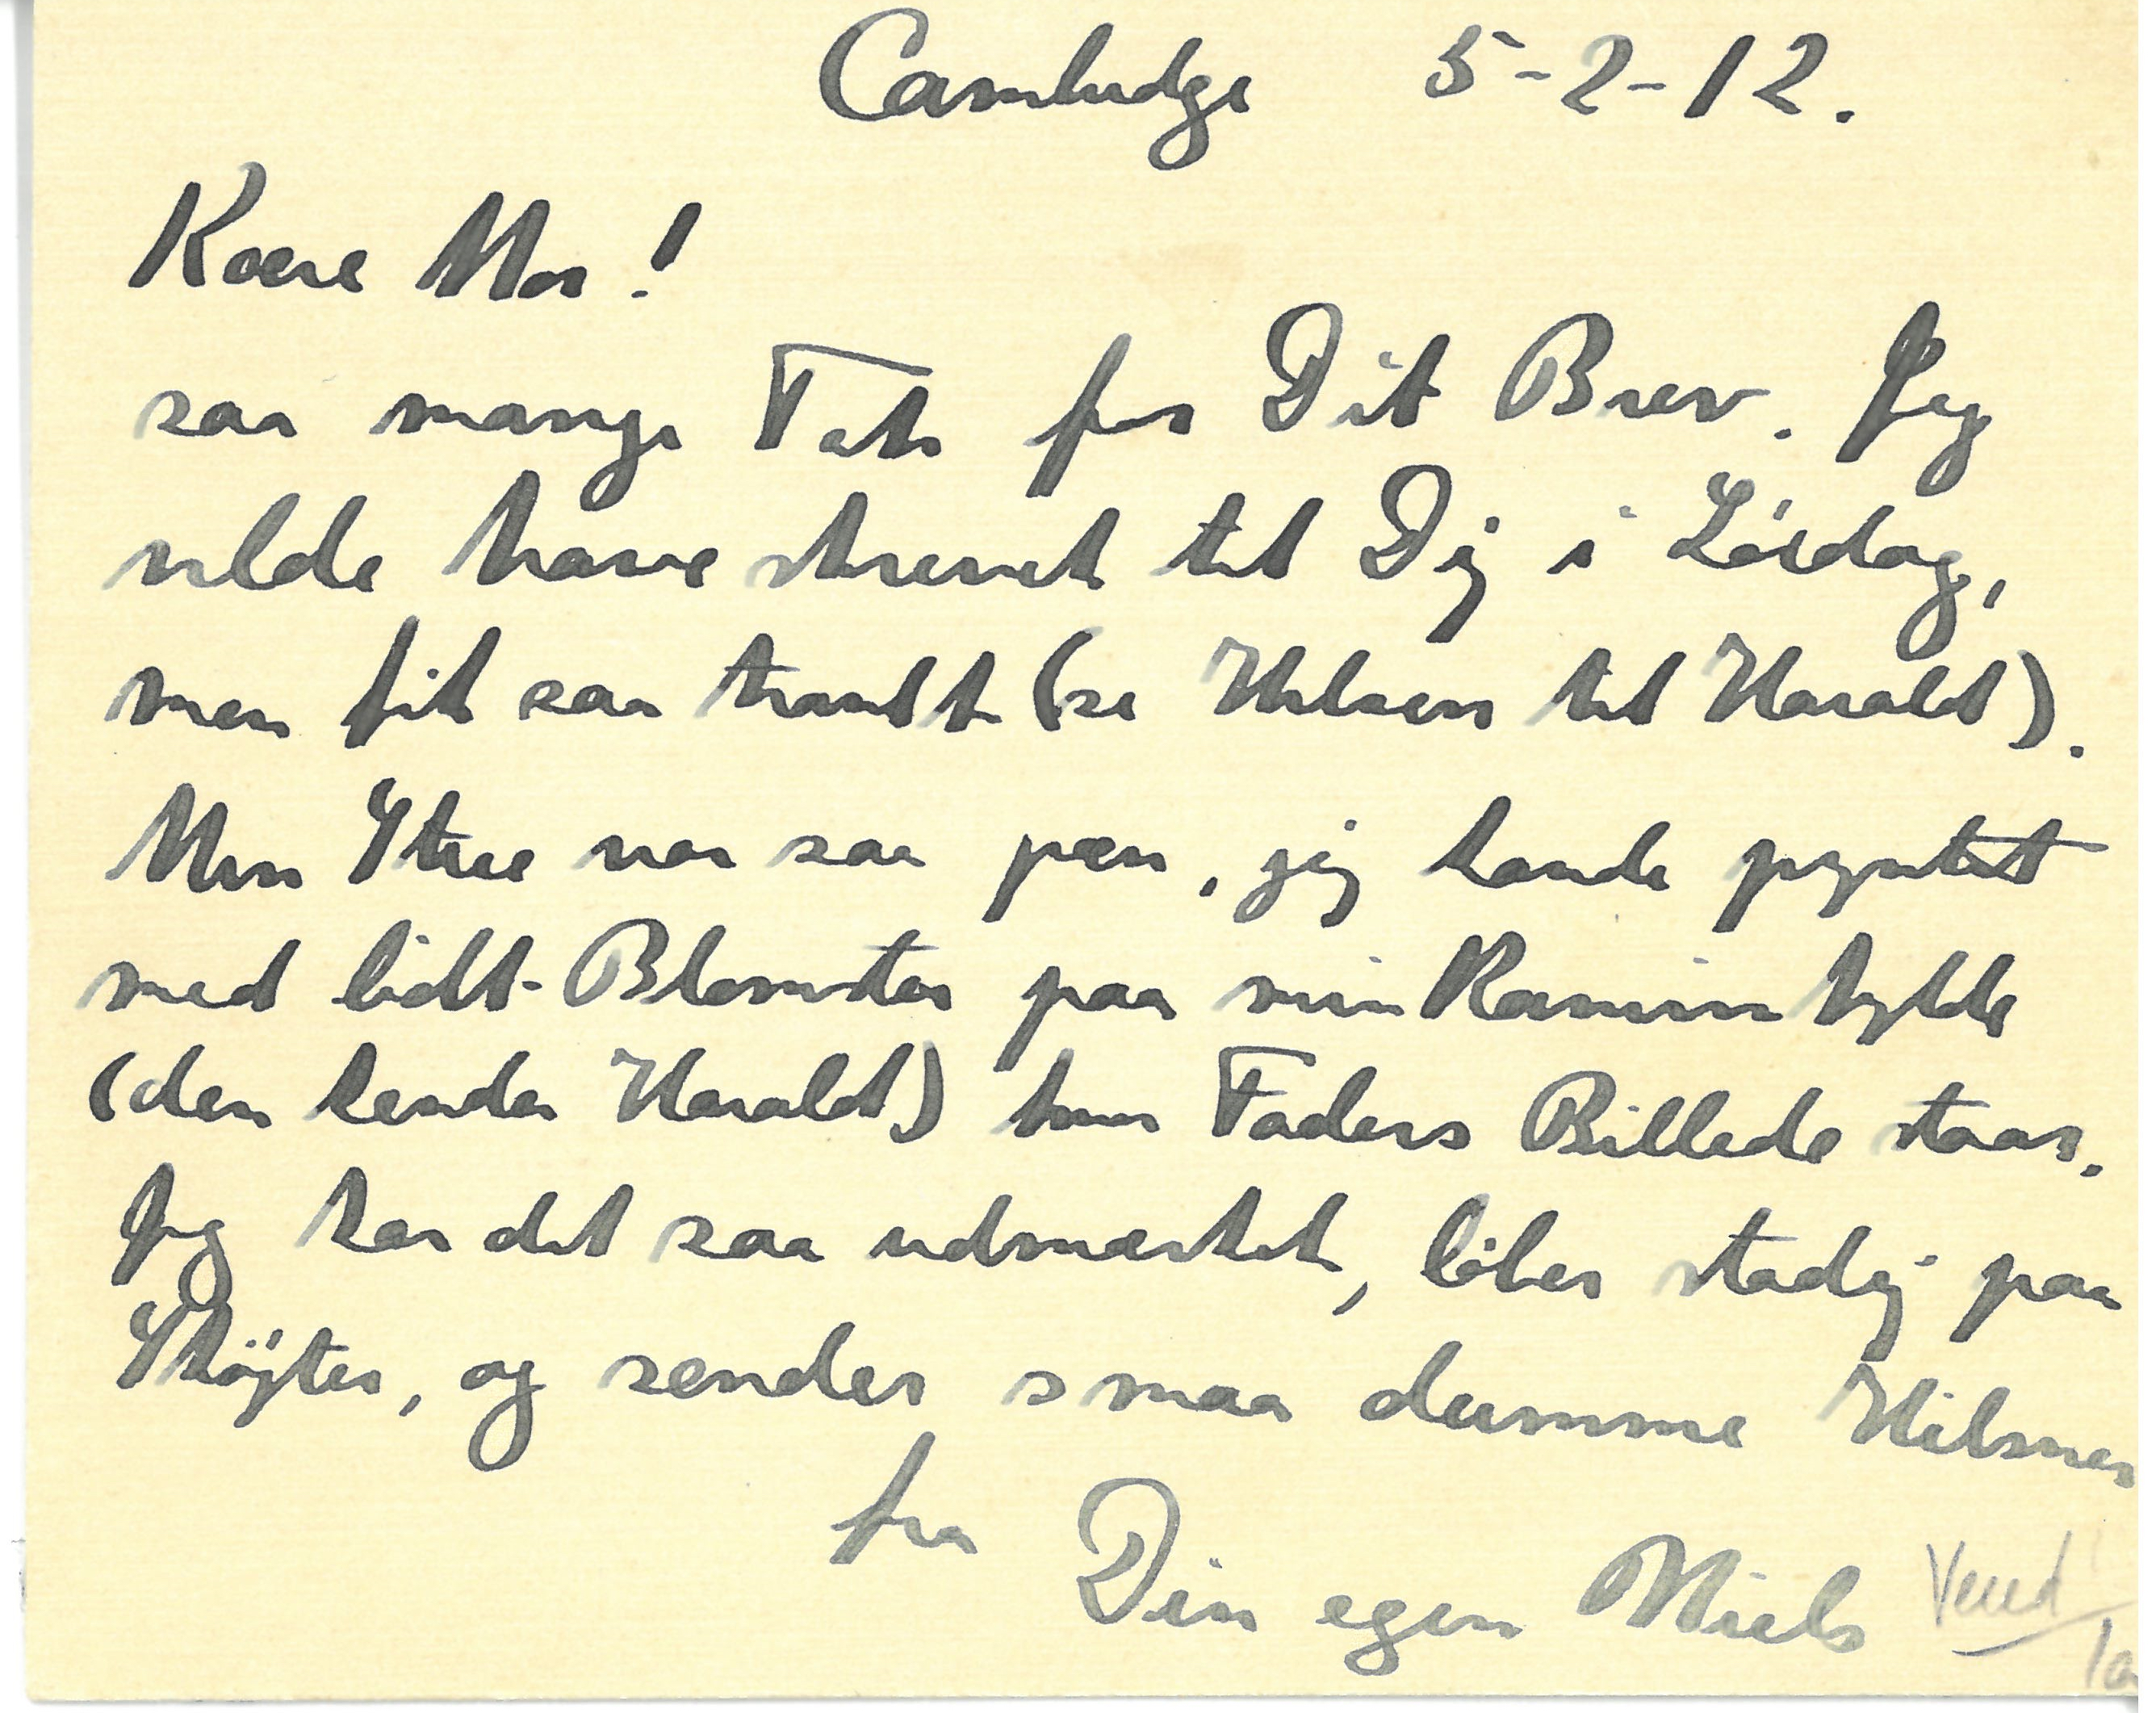 Cambridge 5-2-12.
Kære Mor!
saa mange Tak for Dit Brev. Jeg
vilde have skrevet til Dig i Lördag,
men fik saa travlt (se Hilsen til Harald).
Min Stue var saa pæn, jeg havde pyntet
med lidt Blomster paa min Kaminhylde
(den kender Harald) hvor Faders Billede staar.
Jeg har det saa udmærket, löber stadig paa
Sköjter, og sender smaa dumme Hilsner
fra Din egen Niels
Vend